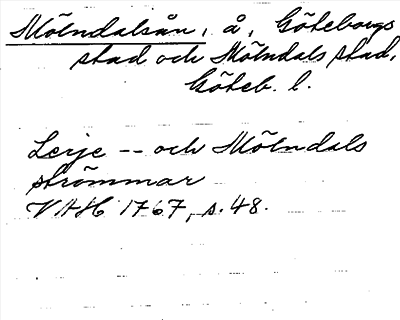 Mölndalsån, å, Göteborgs
stad och Mölndals stad,
Göteb. l.
Lerje -- och Mölndals
strömmar
VAH 1767, s. 48.